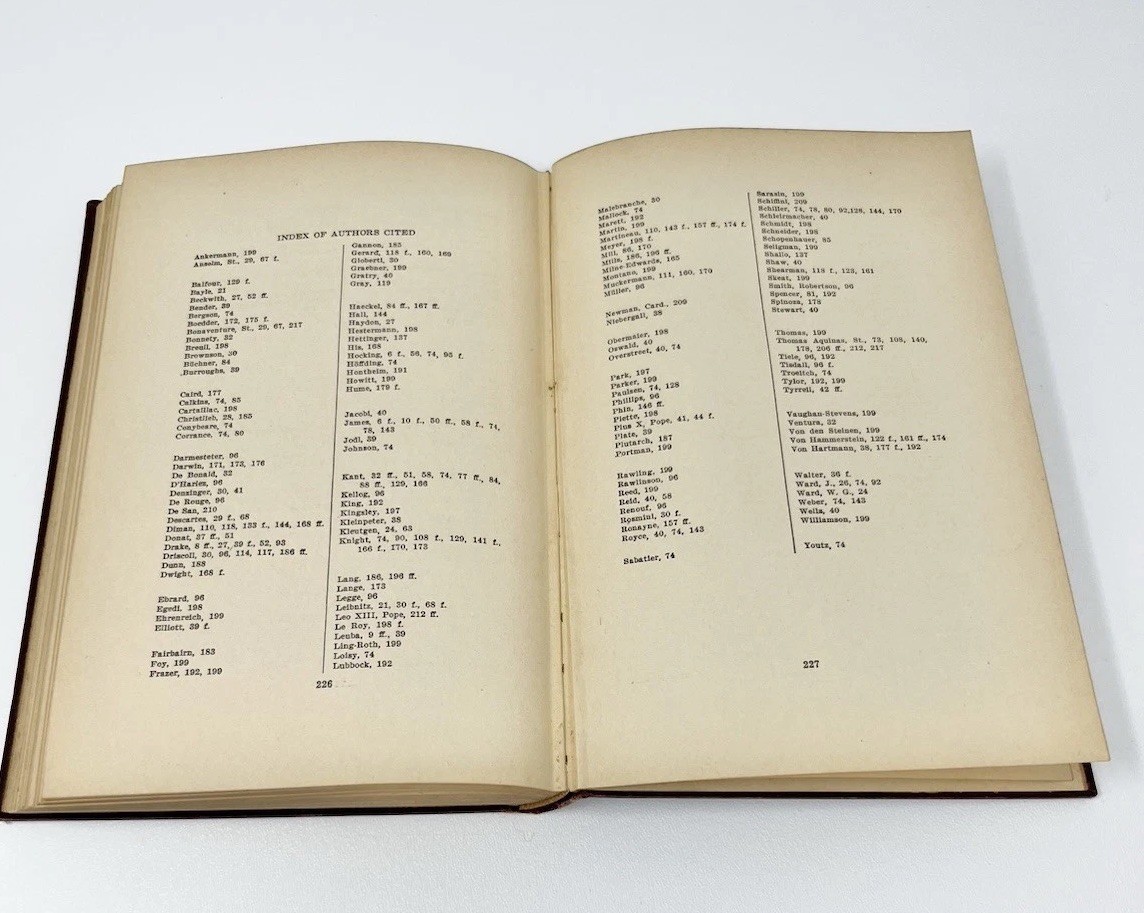 INDEX OF AUTHORS CITED
Ankermann, 199
Anselm, St., 29, 67 f.
Balfour, 129 f.
Bayle, 21
Beckwith, 27, 52 ff.
Bender, 39
Bergson, 74
Boedder, 172, 175 f.
Bonaventure, St., 29, 67, 217
Bonnety, 32
Breuil, 198
Brownson, 30
Büchner, 84
Burroughs, 39
Caird, 177
Calkins, 74, 85
Cartailiac, 198
Christlieb, 28, 185
Conybeare, 74
Corrance, 74, 80
Darmesteter, 96
Darwin, 171, 173, 176
De Bonald, 32
D'Harlez, 96
Denzinger, 30, 41
De Rouge, 96
De San, 210
Descartes, 29 f., 68
Diman, 110, 118, 133 f., 144, 168 ff.
Donat, 37 ff., 51
Drake, 8 ff., 27, 39 f., 52, 93
Driscoll, 30, 96, 114, 117, 186 ff.
Dunn, 188
Dwight, 168 f.
Ebrard, 96
Egedi, 198
Ehrenreich, 199
Elliott, 39 f.
Fairbairn, 183
Foy, 199
Frazer, 192, 199
Gannon, 185
Gerard, 118 f., 160, 169
Gioberti, 30
Graebner, 199
Gratry, 40
Gray, 119
Haeckel, 84 ff., 167 ff.
Hall, 144
Haydon, 27
Hestermann, 198
Hettinger, 137
His, 168
Hocking, 6 f., 56, 74, 95 f.
Höffding, 74
Hontheim, 191
Howitt, 199
Hume, 179 f.
Jacobi, 40
James, 6 f., 10 f., 50 ff., 58 f., 74,
78, 143
Jodl, 39
Johnson, 74
Kant, 32 ff., 51, 58, 74, 77 ff., 84,
88 ff., 129, 166
Kellog, 96
King, 192
Kingsley, 197
Kleinpeter, 38
Kleutgen, 24, 63
Knight, 74, 90, 108 f., 129, 141 f.,
166 f., 170, 173
Lang, 186, 196 ff.
Lange, 173
Legge, 96
Leibnitz, 21, 30 f., 68 f.
Leo XIII, Pope, 212 ff.
Le Roy, 198 f.
Leuba, 9 ff., 39
Ling-Roth, 199
Loisy, 74
Lubbock, 192
226
Malebranche, 30
Mallock, 74
Marett, 192
Martin, 199
Martineau, 110, 143 f., 157 ff., 174 f.
Meyer, 198 f.
Mill, 86, 170
Mills, 186, 196 ff.
Milne-Edwards, 165
Montano, 199
Muckermann, 111, 160, 170
Müller, 96
Newman, Card., 209
Niebergall, 38
Obermaier, 198
Oswald, 40
Overstreet, 40, 74
Park, 197
Parker, 199
Paulsen, 74, 128
Phillips, 96
Phin, 146 ff.
Piette, 198
Pius X, Pope, 41, 44 f.
Plate, 39
Plutarch, 187
Portman, 199
Rawling, 199
Rawlinson, 96
Reed, 199
Reid, 40, 58
Renouf, 96
Rosmini, 30 f.
Ronayne, 157 ff.
Royce, 40, 74, 143
Sabatier, 74
Sarasin, 199
Schiffini, 209
Schiller, 74, 78, 80, 92,128, 144, 170
Schleirmacher, 40
Schmidt, 198
Schneider, 198
Schopenhauer, 85
Seligman, 199
Shallo, 137
Shaw, 40
Shearman, 118 f., 123, 161
Skeat, 199
Smith, Robertson, 96
Spencer, 81, 192
Spinoza, 178
Stewart, 40
Thomas, 199
Thomas Aquinas, St., 73, 108, 140,
178, 206 ff., 212, 217
Tiele, 96, 192
Tisdall, 96 f.
Troeltch, 74
Tylor, 192, 199
Tyrrell, 42 ff.
Vaughan-Stevens, 199
Ventura, 32
Von den Steinen, 199
Von Hammerstein, 122 f., 161 ff., 174
Von Hartmann, 38, 177 f., 192
Walter, 36 f.
Ward, J., 26, 74, 92
Ward, W. G., 24
Weber, 74, 143
Wells, 40
Williamson, 199
Youtz, 74
227